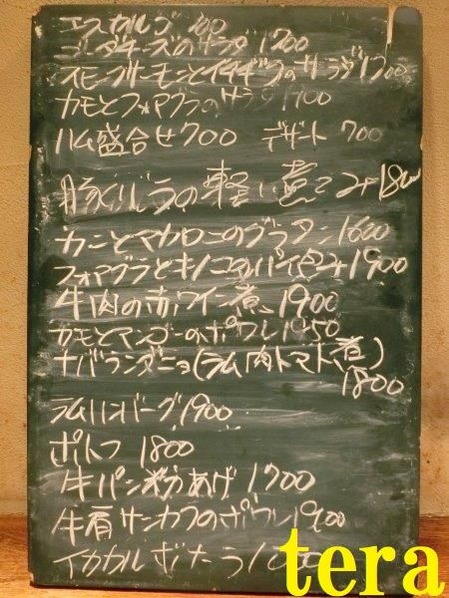 エスカルゴ
ゴーダチーズのサラダ 1700
スモークサーモンとイチヂクのサラダ 1700
カモとフォアグラのサラダ 1700
ハム盛合せ 700 デザート 700
豚バラの軽い煮こみ
カニとマカロニのグラタン 1600
フォアグラとキノコのパイ包み 1900
牛肉の赤ワイン煮 1900
カモとマンゴーのポワレ
ナバランダニョ(ラム肉トマト煮)
1800
ラムハンバーグ 1900
ポトフ 1800
牛パン粉あげ 1700
牛肩サンカクのポワレ 1900
イカ
tera